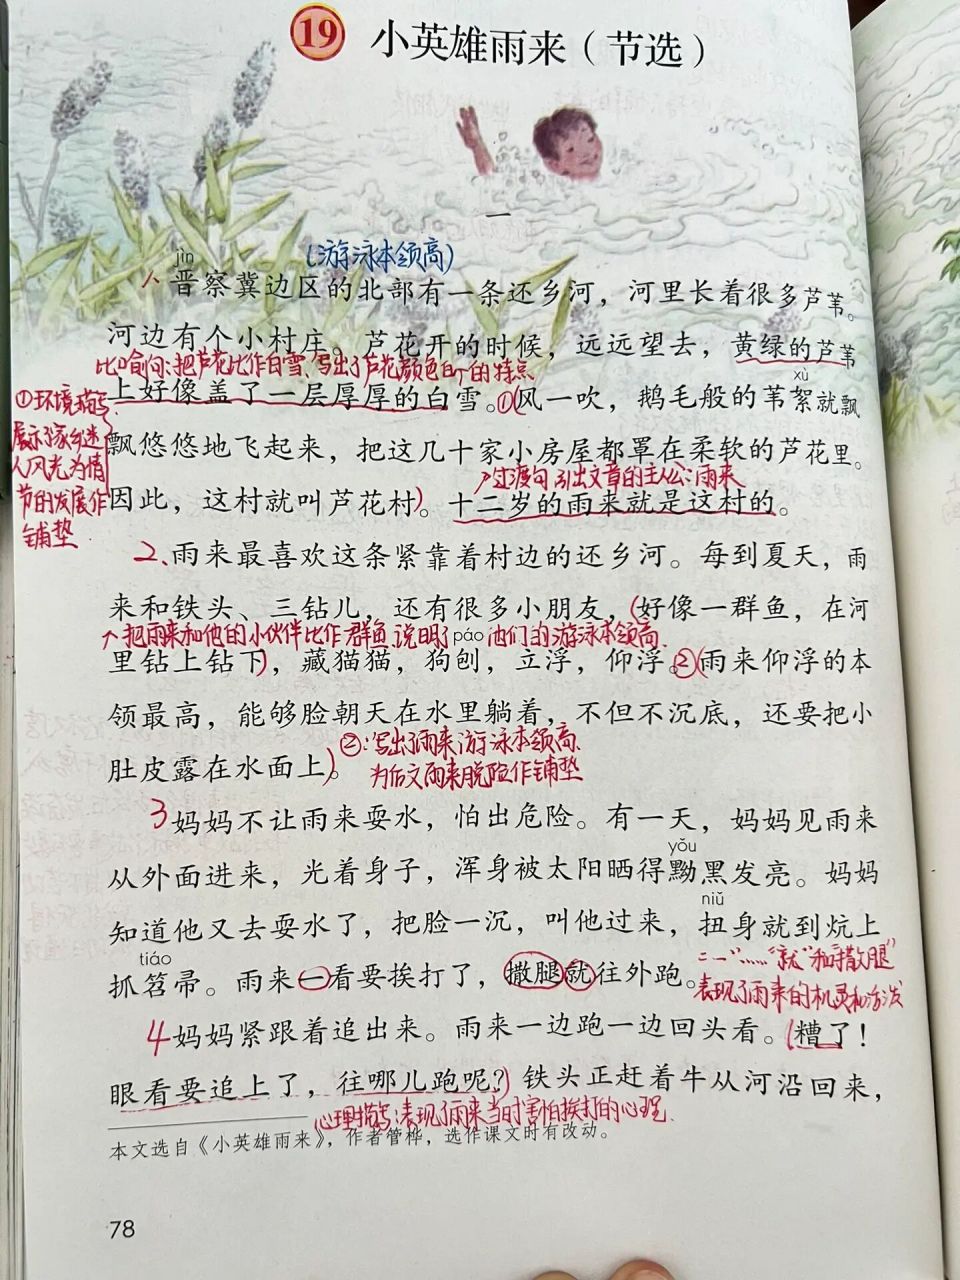 19 小英雄雨来（节选）
一
(游泳本领高)
jìn
1、晋察冀边区的北部有一条还乡河，河里长着很多芦苇。
河边有个小村庄。芦花开的时候，远远望去，黄绿的芦苇
比喻句:把芦花比作白雪,写出了芦花颜色白的特点
xù
上好像盖了一层厚厚的白雪。①(风一吹，鹅毛般的苇絮就飘
①环境描写
展示了家乡迷
人风光为情
节的发展作
铺垫
飘悠悠地飞起来，把这几十家小房屋都罩在柔软的芦花里。
过渡句 引出文章的主人公:雨来
因此，这村就叫芦花村)。十二岁的雨来就是这村的。
2、雨来最喜欢这条紧靠着村边的还乡河。每到夏天，雨
来和铁头、三钻儿，还有很多小朋友，(好像一群鱼，在河
把雨来和他的小伙伴比作群鱼,说明了他们的游泳本领高.
páo
里钻上钻下)，藏猫猫，狗刨，立浮，仰浮。②(雨来仰浮的本
领最高，能够脸朝天在水里躺着，不但不沉底，还要把小
②:写出了雨来游泳本领高.
为后文雨来脱险作铺垫
肚皮露在水面上)。
3 妈妈不让雨来耍水，怕出危险。有一天，妈妈见雨来
yǒu
从外面进来，光着身子，浑身被太阳晒得黝黑发亮。妈妈
niǔ
知道他又去耍水了，把脸一沉，叫他过来，扭身就到炕上
tiáo
抓笤帚。雨来一看要挨打了，撒腿就往外跑。
"一"……"就"和"撒腿"
表现了雨来的机灵和活泼
4 妈妈紧跟着追出来。雨来一边跑一边回头看。(糟了！
眼看要追上了，往哪儿跑呢？)铁头正赶着牛从河沿回来，
心理描写:表现了雨来当时害怕挨打的心理.
本文选自《小英雄雨来》，作者管桦，选作课文时有改动。
78